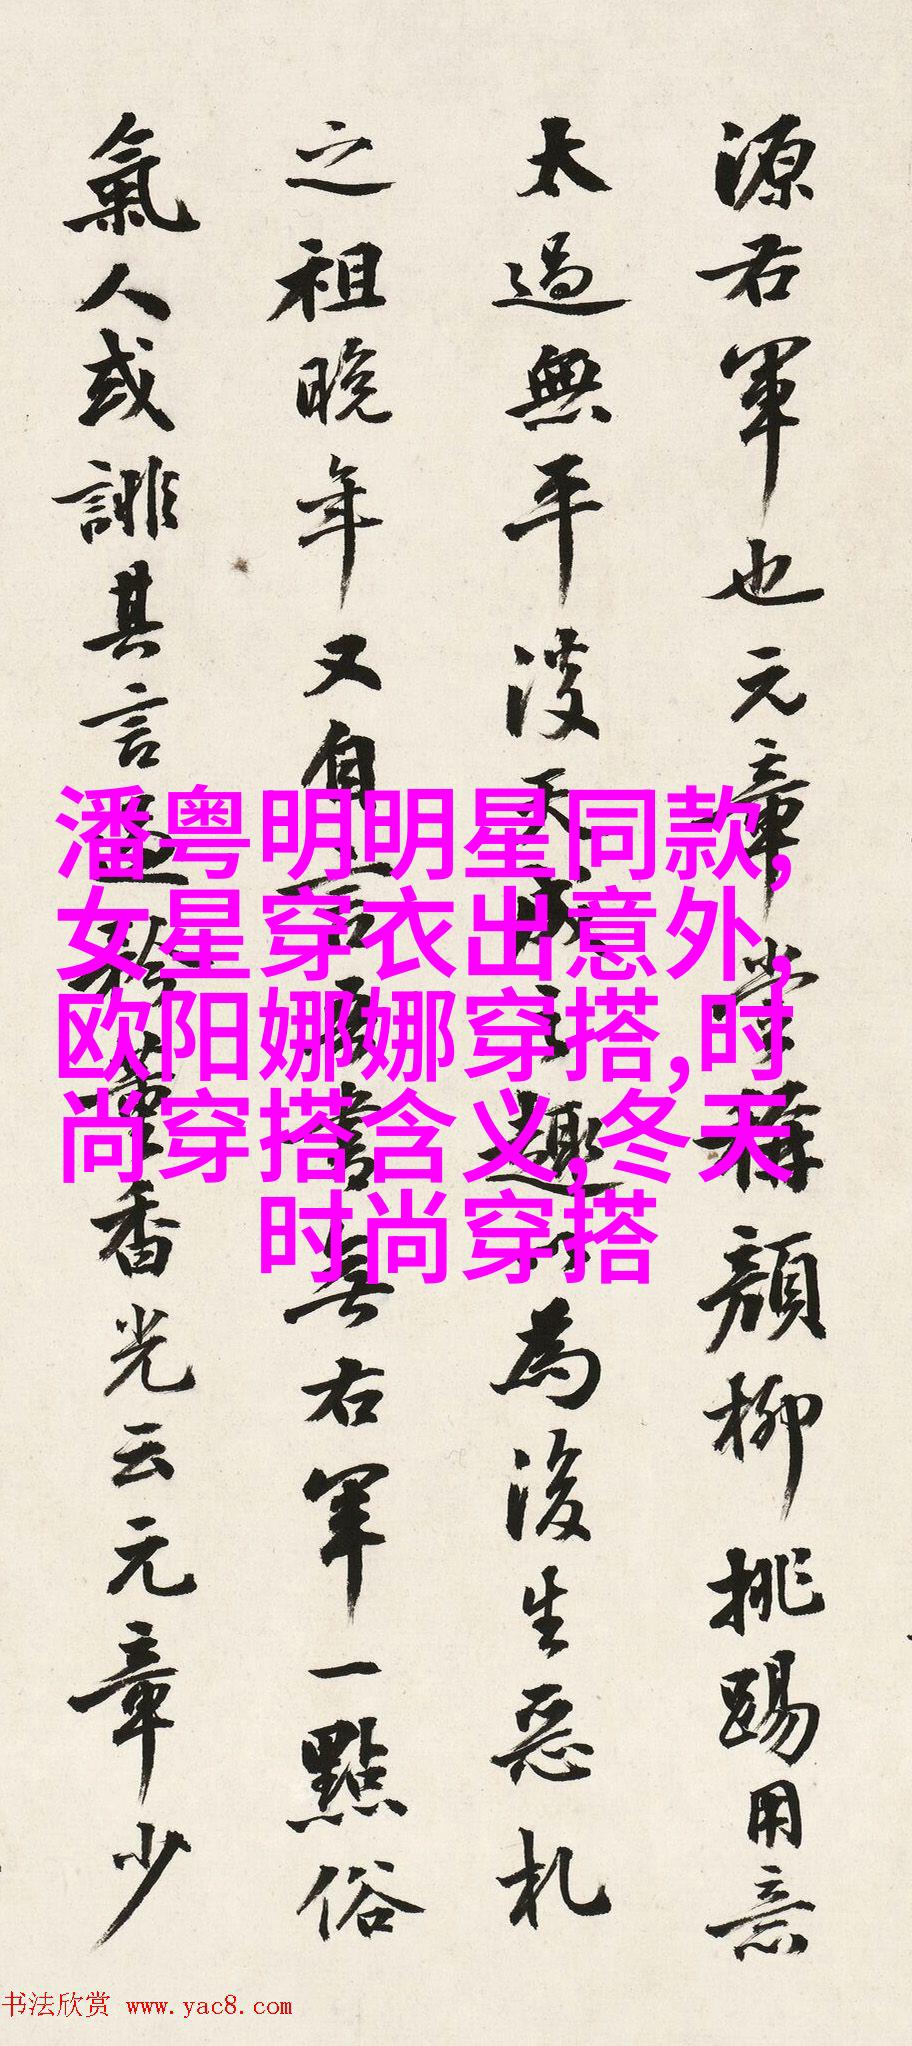 源右軍也元章嘗稱顔柳挑踢用意
太過無平淡天成之趣為後生惡札
之祖晚年又自言展書無右軍一點俗
氣人或誹其言香光云元章少
潘粤明明星同款,
女星穿衣出意外,
欧阳娜娜穿搭,时
尚穿搭含义,冬天
时尚穿搭
书法欣赏 www.yac8.com